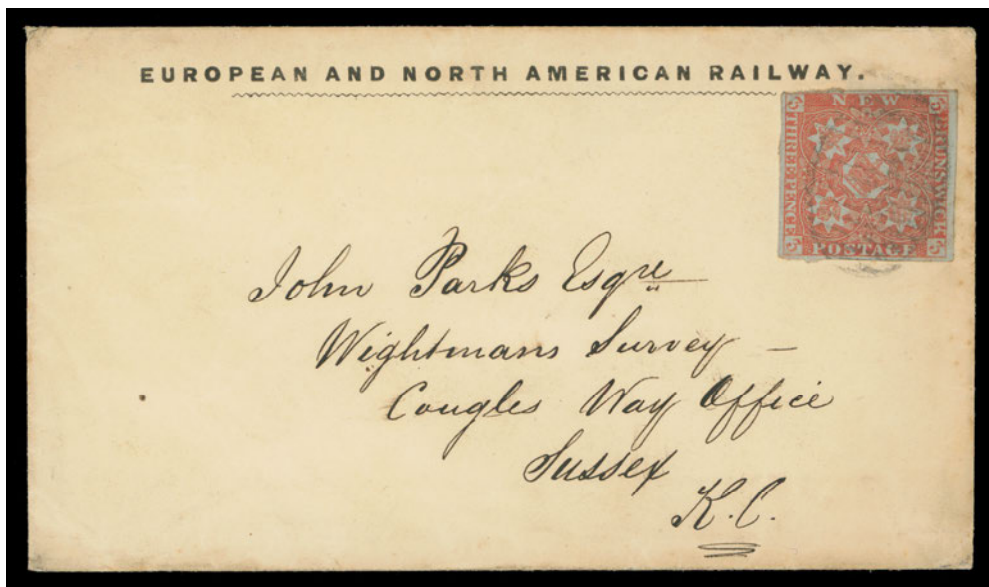 EUROPEAN AND NORTH AMERICAN RAILWAY.
NEW
BRUNSWICK
THREE PENCE
POSTAGE
John Parks Esqre
Wightmans Survey —
Cougles Way Office
Sussex
K.C.